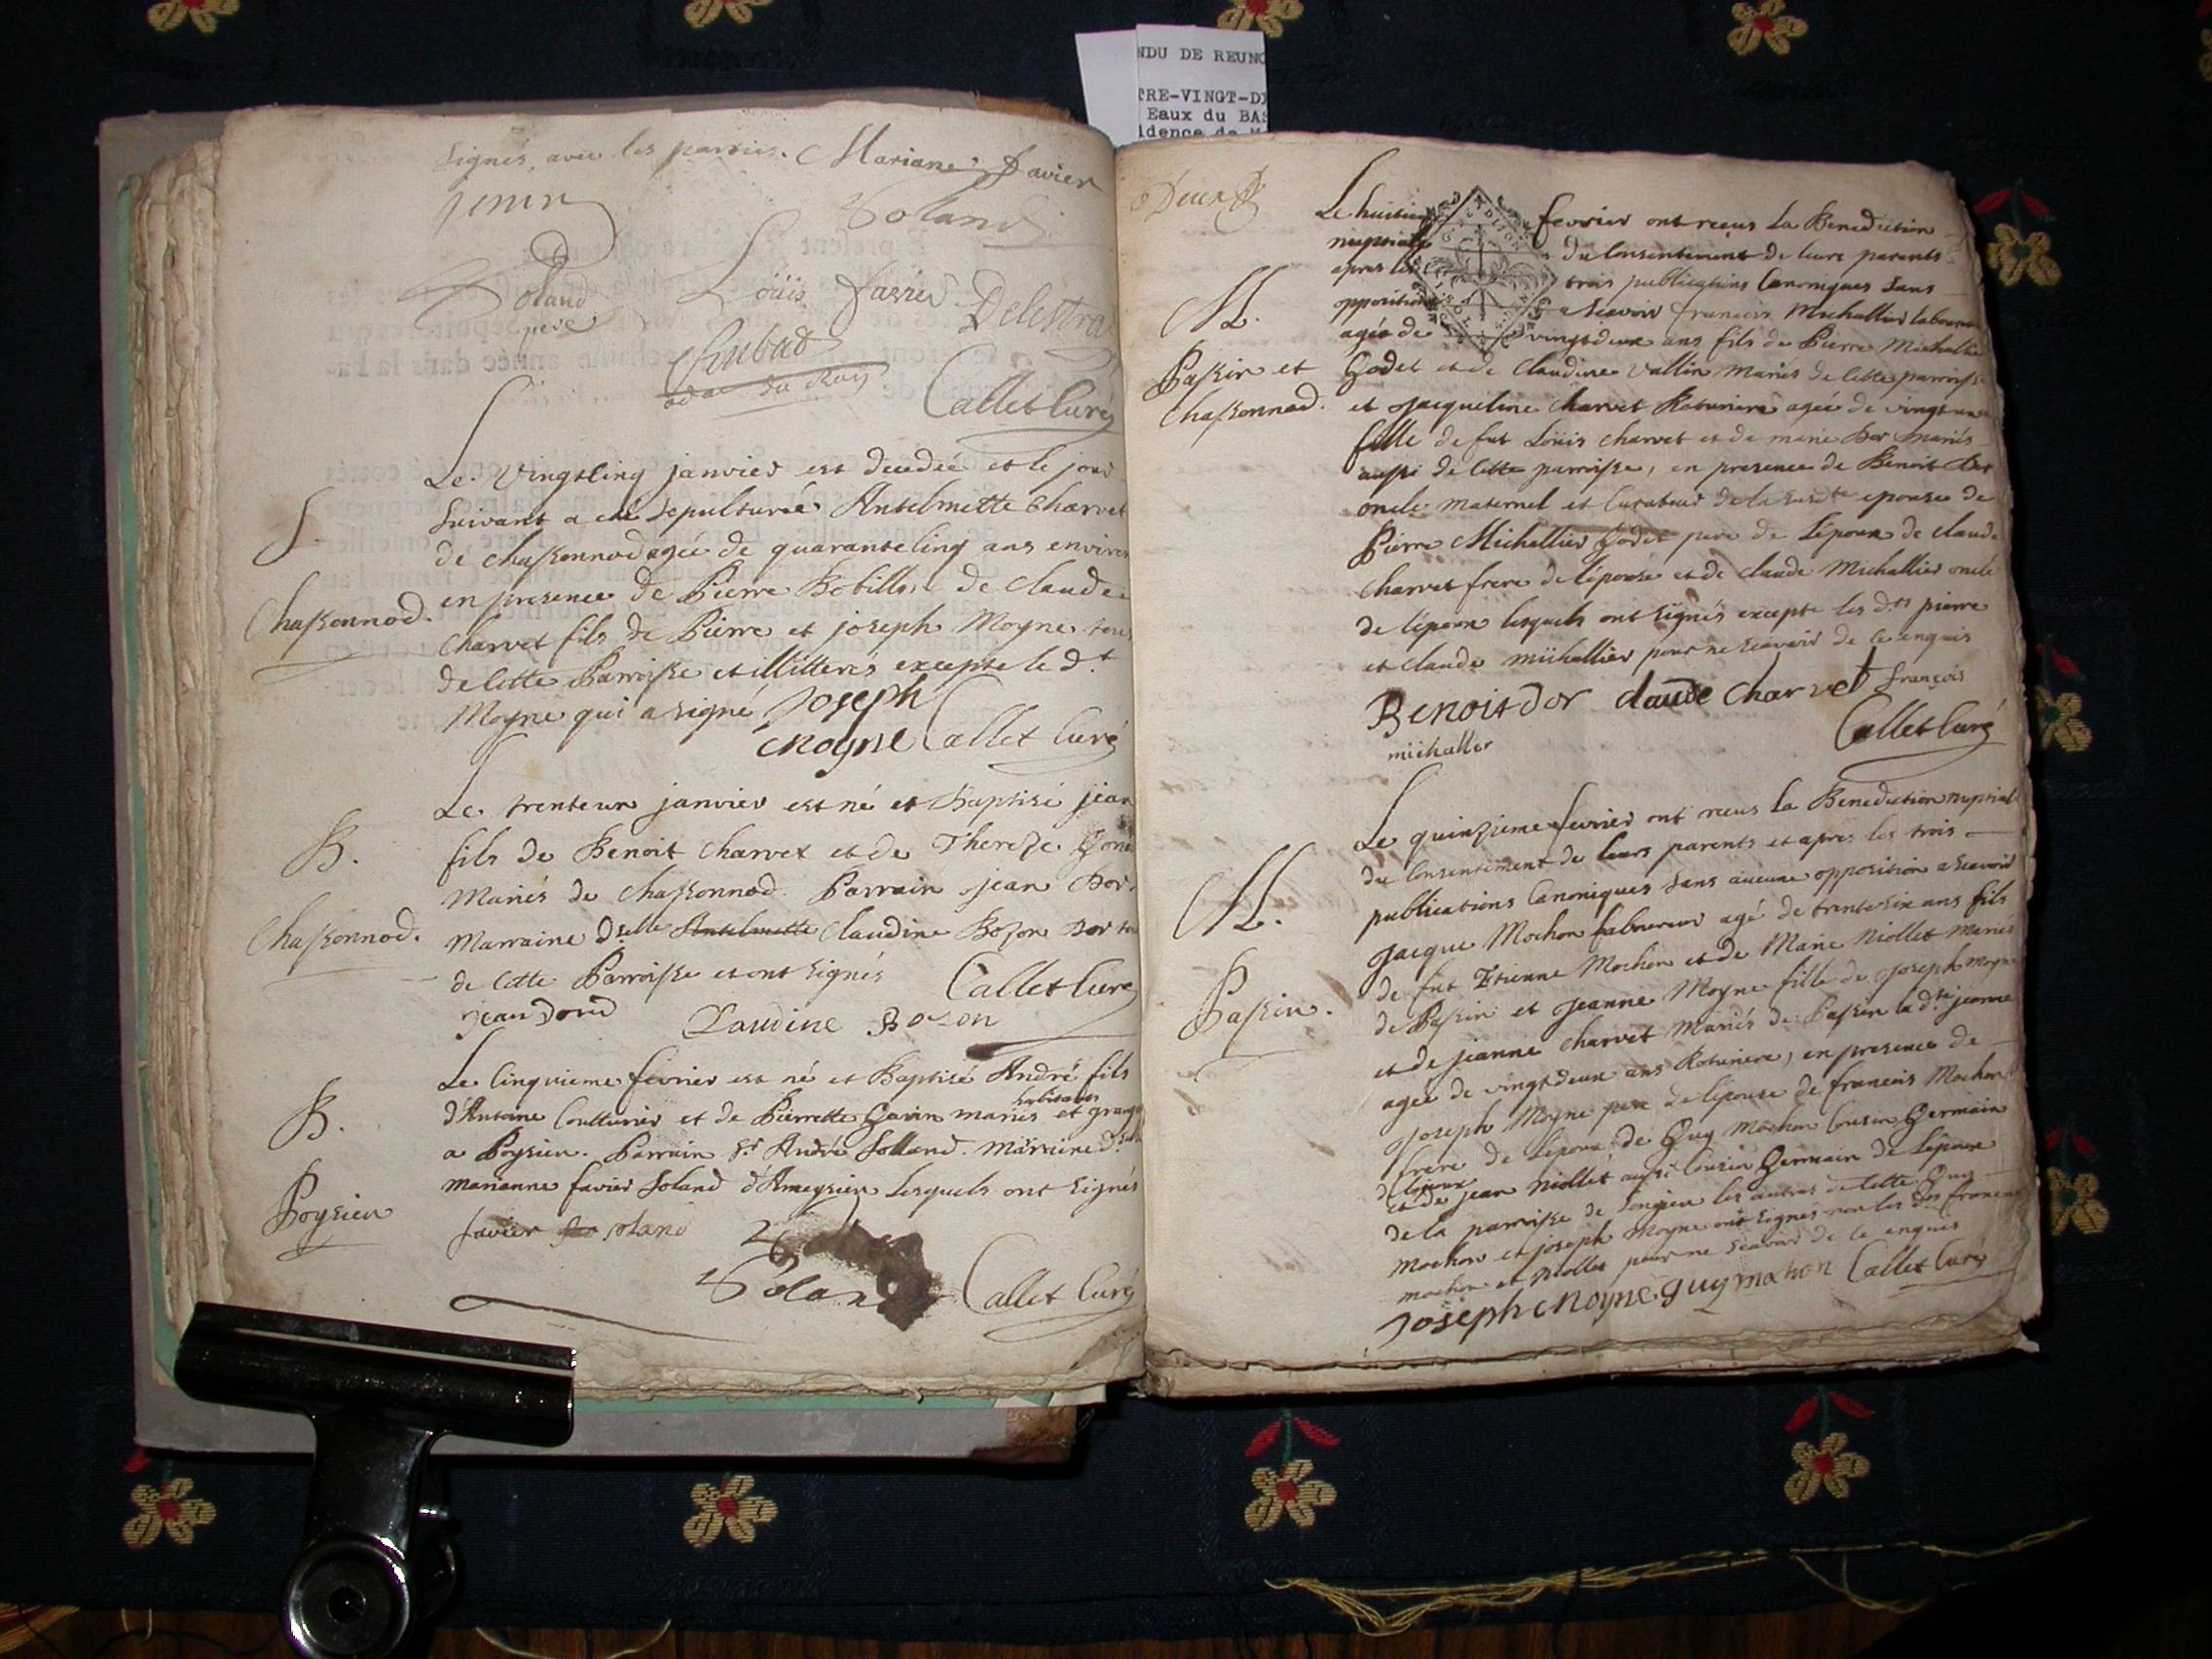 NDU DE REUNO
TRE-VINGT-DI
Eaux du BAS
idence de
signés avec les parties. Mariane favier
jenin Soland
Soland Loüis favier Delestra
pere
Cubat
Callet Curé
Le Vingt cinq janvier est decedée et le jour
suivant a eté sepulturée Antelmette Charvet
S.
de Chassonnod agée de quarante cinq ans environ
en presence de Pierre Bobillon de Claude
Chassonnod.
Charvet fils de Pierre et joseph Moyne tous
de cette Parroisse et illitterés excepté le d.t
Moyne qui a signé Joseph
Moyne Callet Curé
Le trente un janvier est né et Baptisé jean
B.
fils de Benoit Charvet et de Thereze
Mariés de Chassonnod. Parrain jean Dor.
Chassonnod.
Marraine d.elle Antelmette Claudine Bozon Dor
de cette Parroisse et ont signés Callet Curé
jean Dord Claudine Bozon
Le Cinquieme fevrier est né et Baptisé André fils
B.
d'Antoine Coutturier et de Pierrette Gavin mariés habitants et
a Poysieu. Parrain S.r André Solland. Marraine d.elle
Poysieu
marianne favier Soland d'Ameysieu Lesquels ont signés
favier soland
Solan Callet Curé
Deux
Le huitieme fevrier ont receus La Benediction
nuptiale du Consentement de leurs parents
apres les trois publications Canoniques sans
M.
opposition a scavoir francois Michallier laboureur
agée de vingt deux ans fils de Pierre Michallier
Passin et
Godet et de Claudine Vallin Mariés de cette parroisse
Chassonnod.
et Jacqueline Charvet Roturiere agée de vingt un
fille de fut Loüis Charvet et de marie Dor mariés
aussi de cette parroisse, en presence de Benoit Dor
oncle maternel et Curateur de la susd.te epouse de
Pierre Michallier Godet pere de L'époux de Claude
Charvet frere de l'épouse et de Claude Michallier oncle
de l'époux lesquels ont signés excepté les d.ts pierre
et Claude michallier pour ne scavoir de ce enquis
Benoit dor claude charvet françois
michallier Callet Curé
Le quinzieme fevrier ont receus la Benediction nuptiale
du Consentement de leurs parents et apres les trois
M.
publications Canoniques Sans aucune opposition a scavoir
Jacque Mochon laboureur agé de trente six ans fils
Passin.
de fut Etienne Mochon et de Marie Niollet mariés
de Passin et Jeanne Moyne fille de Joseph Moyne
et de jeanne Charvet mariés de Passin la d.te jeanne
agée de vingt deux ans Roturiere, en presence de
Joseph Moyne pere de l'épouse de francois Mochon
frere de L'époux de Guy Mochon Cousin Germain
de l'époux
et de jean Niollet aussi Cousin Germain de L'époux
de la parroisse de Songieu les autres de cette Guy
Mochon et joseph Moyne ont signés non les d.ts francois
mochon et Niollet pour ne scavoir de ce enquis
Joseph Moyne guy mochon Callet Curé